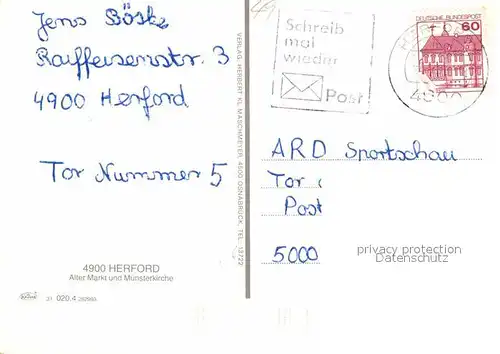 Jens Böske
Raiffeisenstr. 3
4900 Herford
Tor Nummer 5
4900 HERFORD
Alter Markt und Münsterkirche
31 020.4
VERLAG: HERBERT KL. MASCHMEYER, 4500 OSNABRÜCK, TEL.
Schreib
mal
wieder
Post
DEUTSCHE BUNDESPOST
60
ARD Sportschau
Tor
Post
5000
privacy protection
Datenschutz